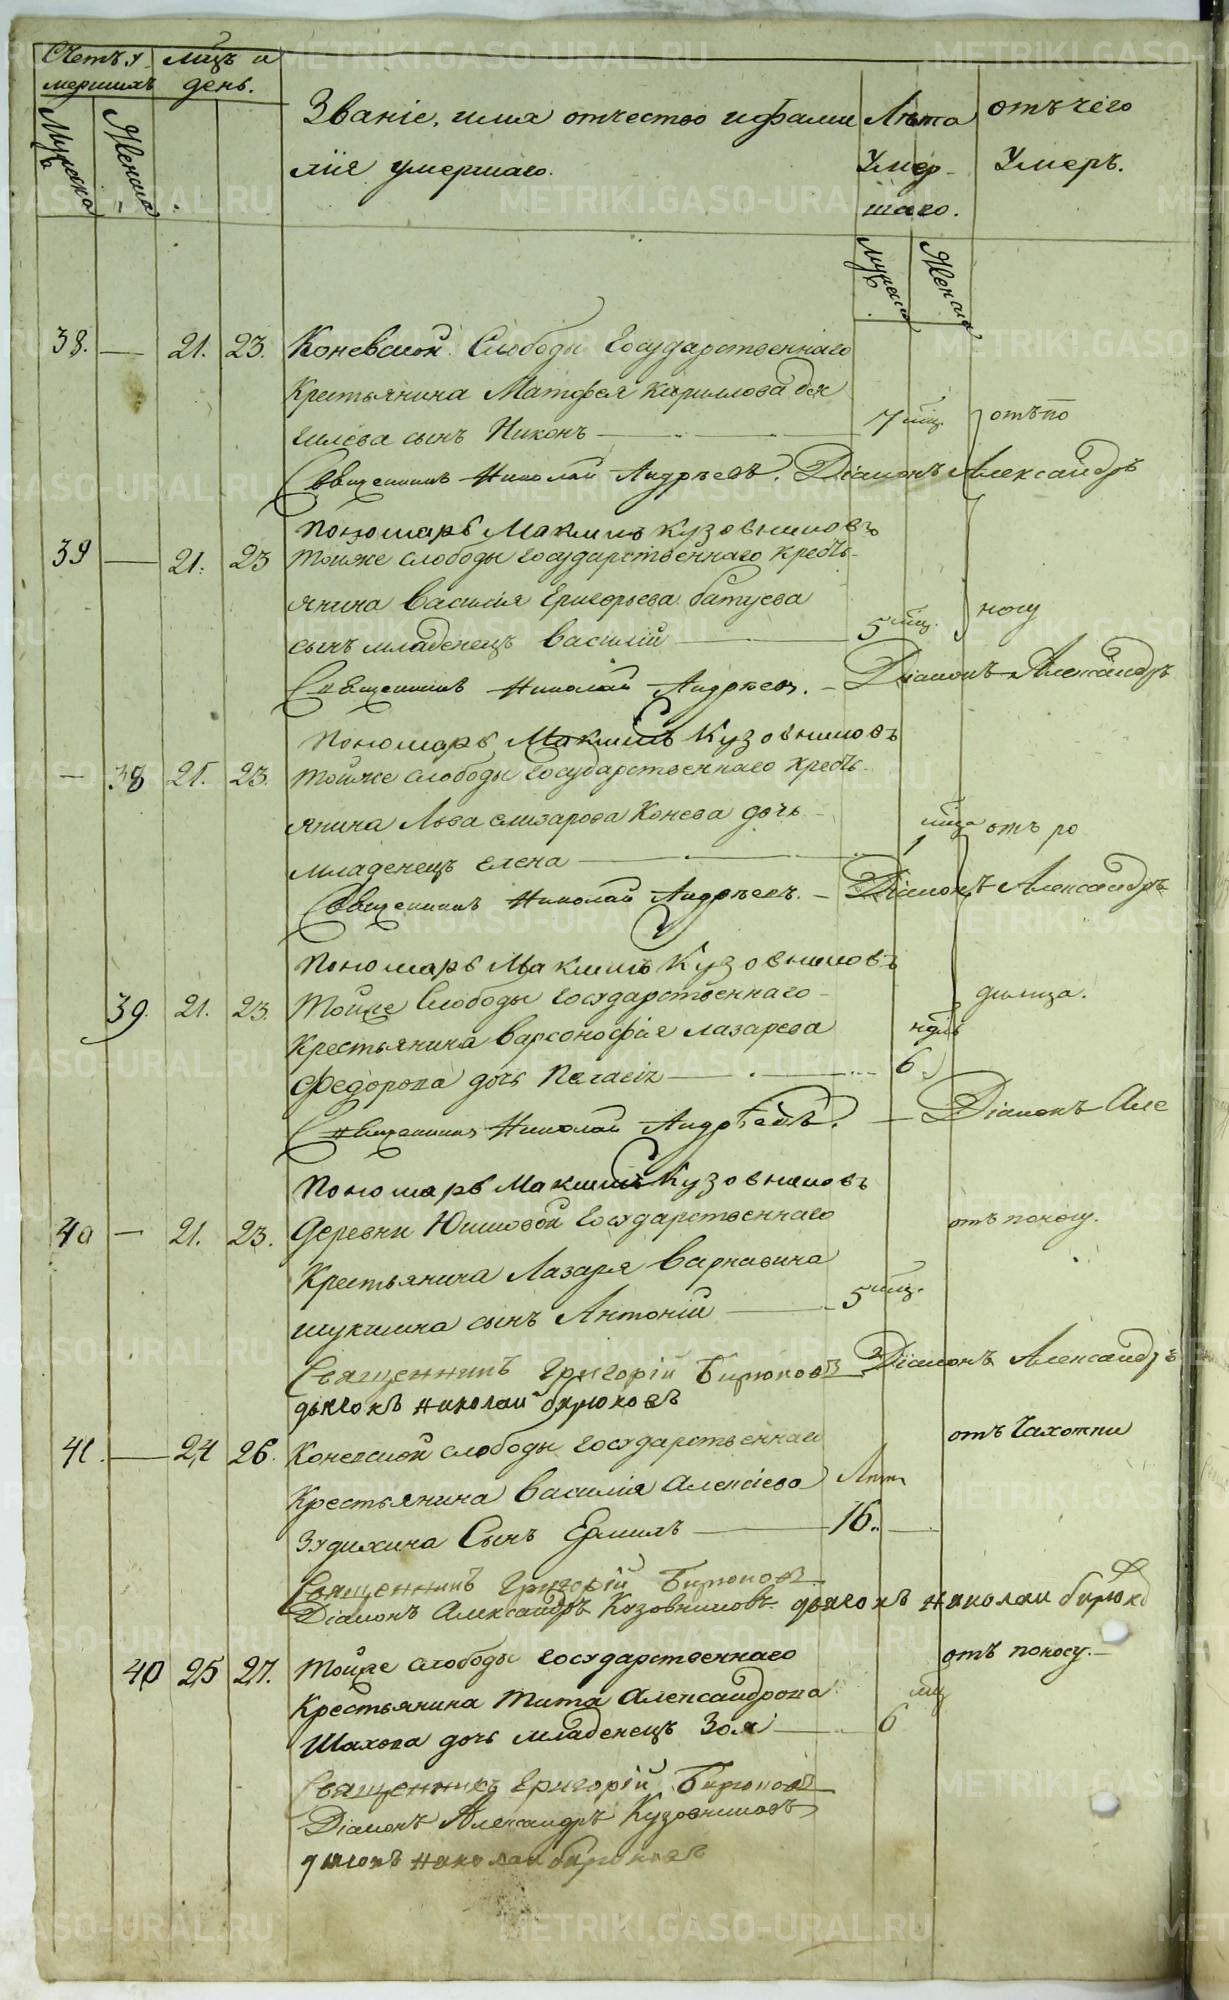 Счетъ у
мершихъ
Мужеска
Женска
мцъ и
день.
Званіе, имя отчество и фами
лія умершаго.
Лѣта
Умер
шаго.
Мужеска
Женска
отъ чего
Умеръ.
38. — 21. 23. Коневской Слободы Государственнаго
Крестьянина Матфея Кириллова
сынъ Никонъ — 7 мцъ отъ по
Священникъ Николай Андреевъ. Діаконъ Александръ
Пономарь Максимъ Кузовниковъ
39 — 21. 23 Тойже слободы государственнаго кресть-
янина Василія Григорьева батуева
сынъ младенецъ Василій — 5 мцъ. носу
Священникъ Николай Андреевъ. — Діаконъ Александръ
Пономарь Максимъ Кузовниковъ
— 38 21. 23. Тойже слободы государственнаго кресть-
янина Льва елизарова Конева дочь
младенецъ елена — 1 мцъ отъ ро
Священникъ Николай Андреевъ. — Діаконъ Александръ
Пономарь Максимъ Кузовниковъ
39. 21. 23. Тойже Слободы государственнаго
Крестьянина Варсонофія лазарева
Федорова дочь Пелагія — 6 ндль димца.
Священникъ Николай Андреевъ. — Діаконъ Але
Пономарь Максимъ Кузовниковъ
40 — 21. 23. Деревни Юшковой Государственнаго отъ поносу.
Крестьянина Лазаря Варнавина
щукшина сынъ Антоній — 5 мцъ.
Священникъ Григорій Бирюковъ Діаконъ Александръ
дьячокъ николай бирюковъ
41. — 24 26. Коневской слободы государственнаго отъ Чахотки
Крестьянина Василія Алексіева Лѣтъ
Зудихина Сынъ Ермилъ — 16. —
Священникъ Григорій Бирюковъ
Діаконъ Александръ Кузовниковъ дьячокъ николай бирюко
40 25 27. Тойже слободы государственнаго отъ поносу. —
Крестьянина Тита Александрова мцъ
Шахова дочь младенецъ Зоя — 6
Священникъ Григорій Бирюковъ
Діаконъ Александръ Кузовниковъ
дьячокъ николай бирюковъ
METRIKI.GASO-URAL.RU